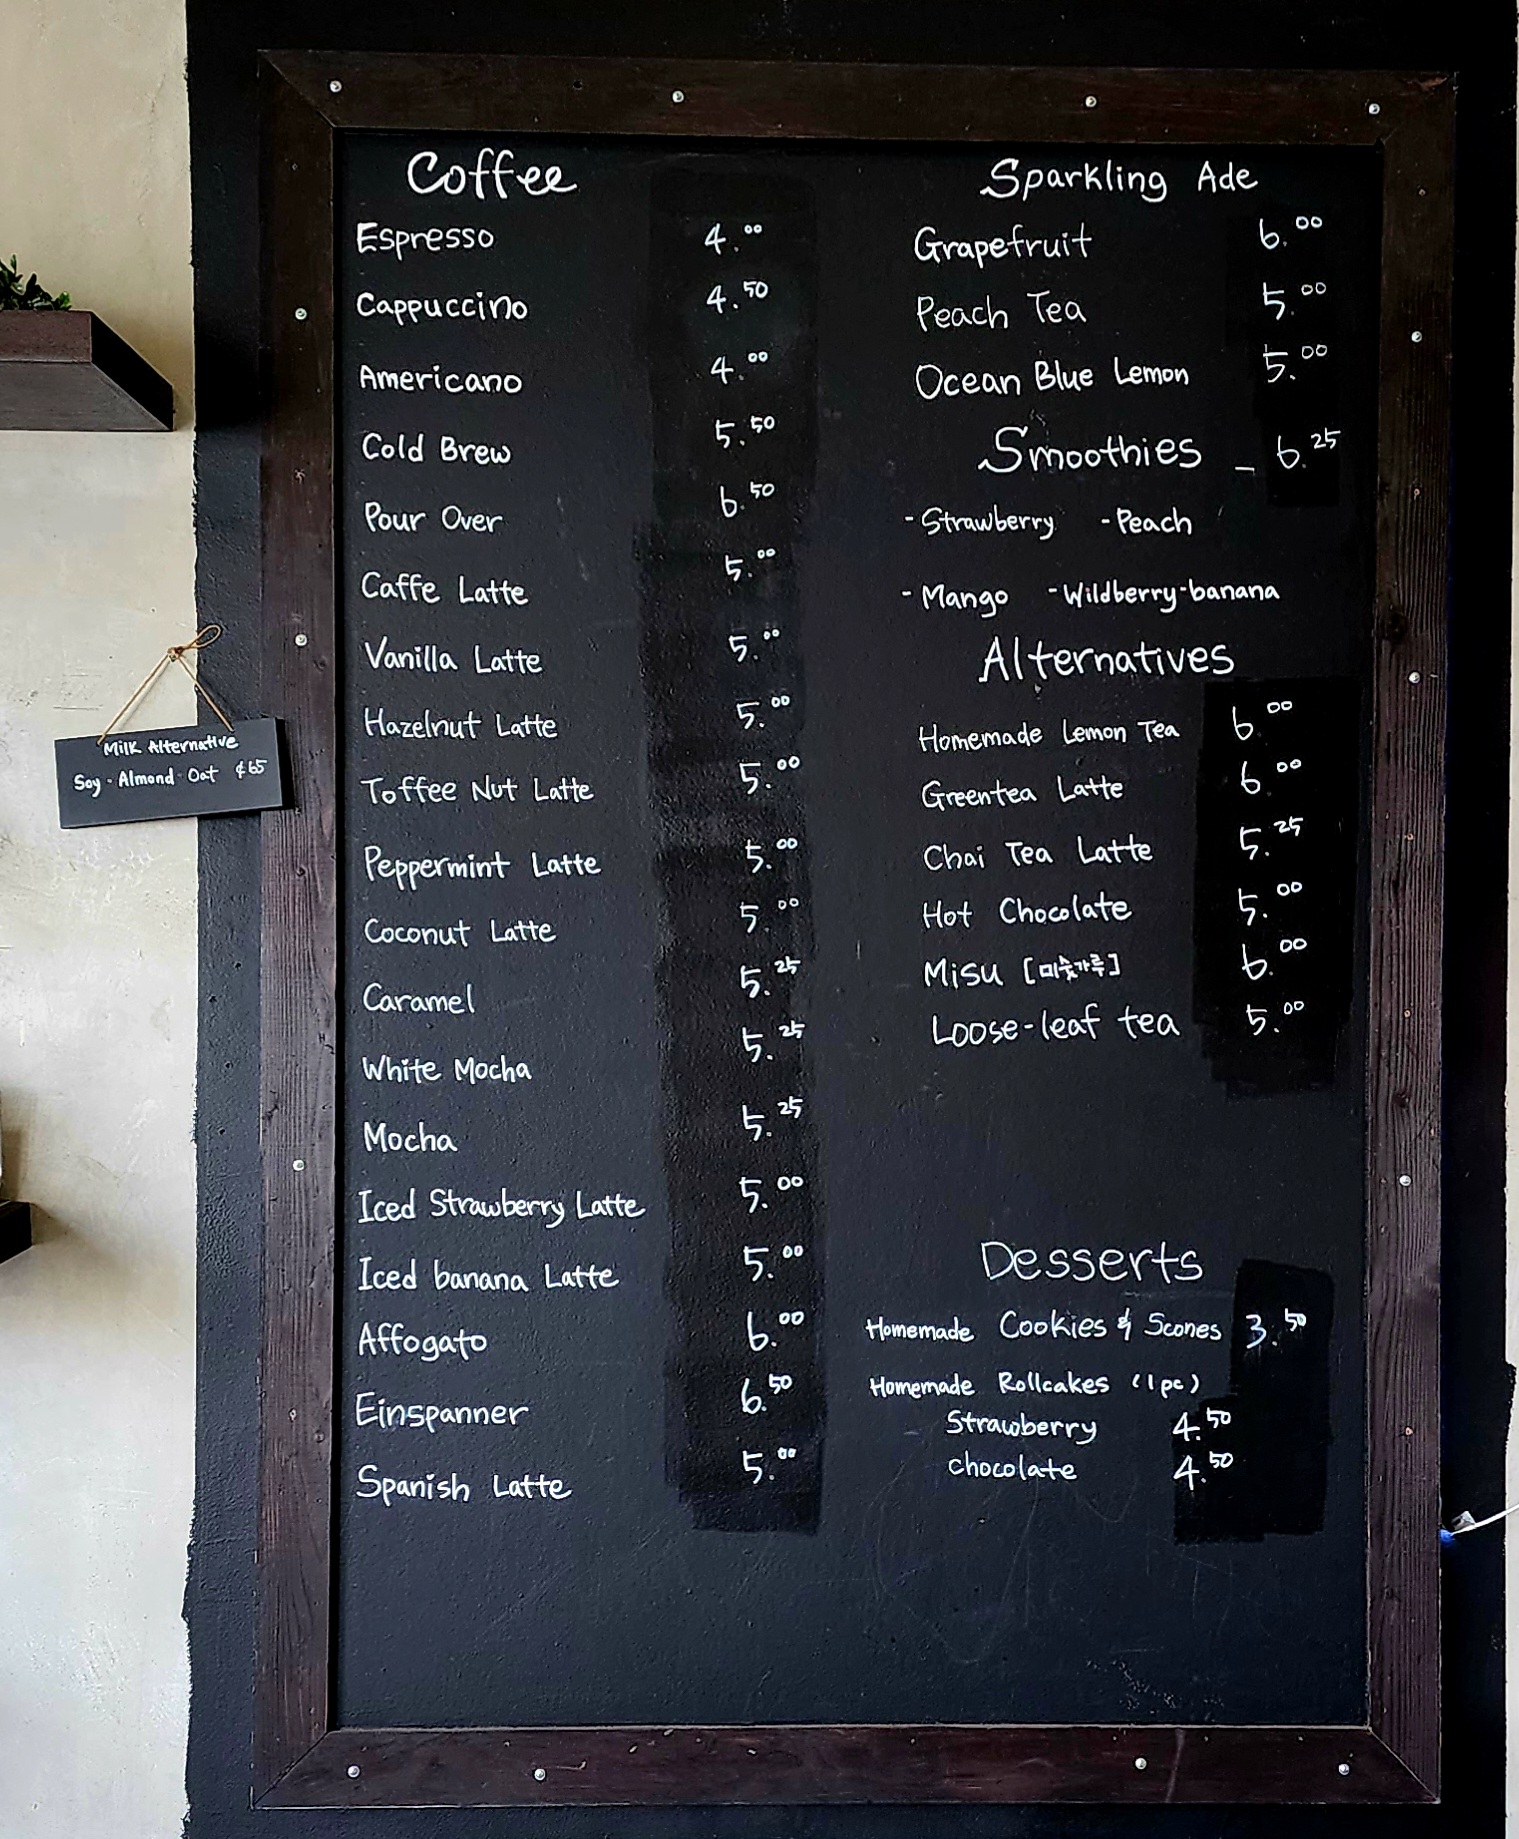 Coffee
Espresso 4.00
Cappuccino 4.50
Americano 4.00
Cold Brew 5.50
Pour Over 6.50
Caffe Latte 5.00
Vanilla Latte 5.00
Hazelnut Latte 5.00
Toffee Nut Latte 5.00
Peppermint Latte 5.00
Coconut Latte 5.00
Caramel 5.25
White Mocha 5.25
Mocha 5.25
Iced Strawberry Latte 5.00
Iced banana Latte 5.00
Affogato 6.00
Einspanner 6.50
Spanish Latte 5.00
Sparkling Ade
Grapefruit 6.00
Peach Tea 5.00
Ocean Blue Lemon 5.00
Smoothies - 6.25
-Strawberry -Peach
-Mango -Wildberry-banana
Alternatives
Homemade Lemon Tea 6.00
Greentea Latte 6.00
Chai Tea Latte 5.25
Hot Chocolate 5.00
Misu [미숫가루] 6.00
Loose-leaf tea 5.00
Desserts
Homemade Cookies & Scones 3.50
Homemade Rollcakes (1pc)
Strawberry 4.50
chocolate 4.50
Milk Alternative
Soy · Almond · Oat ¢65